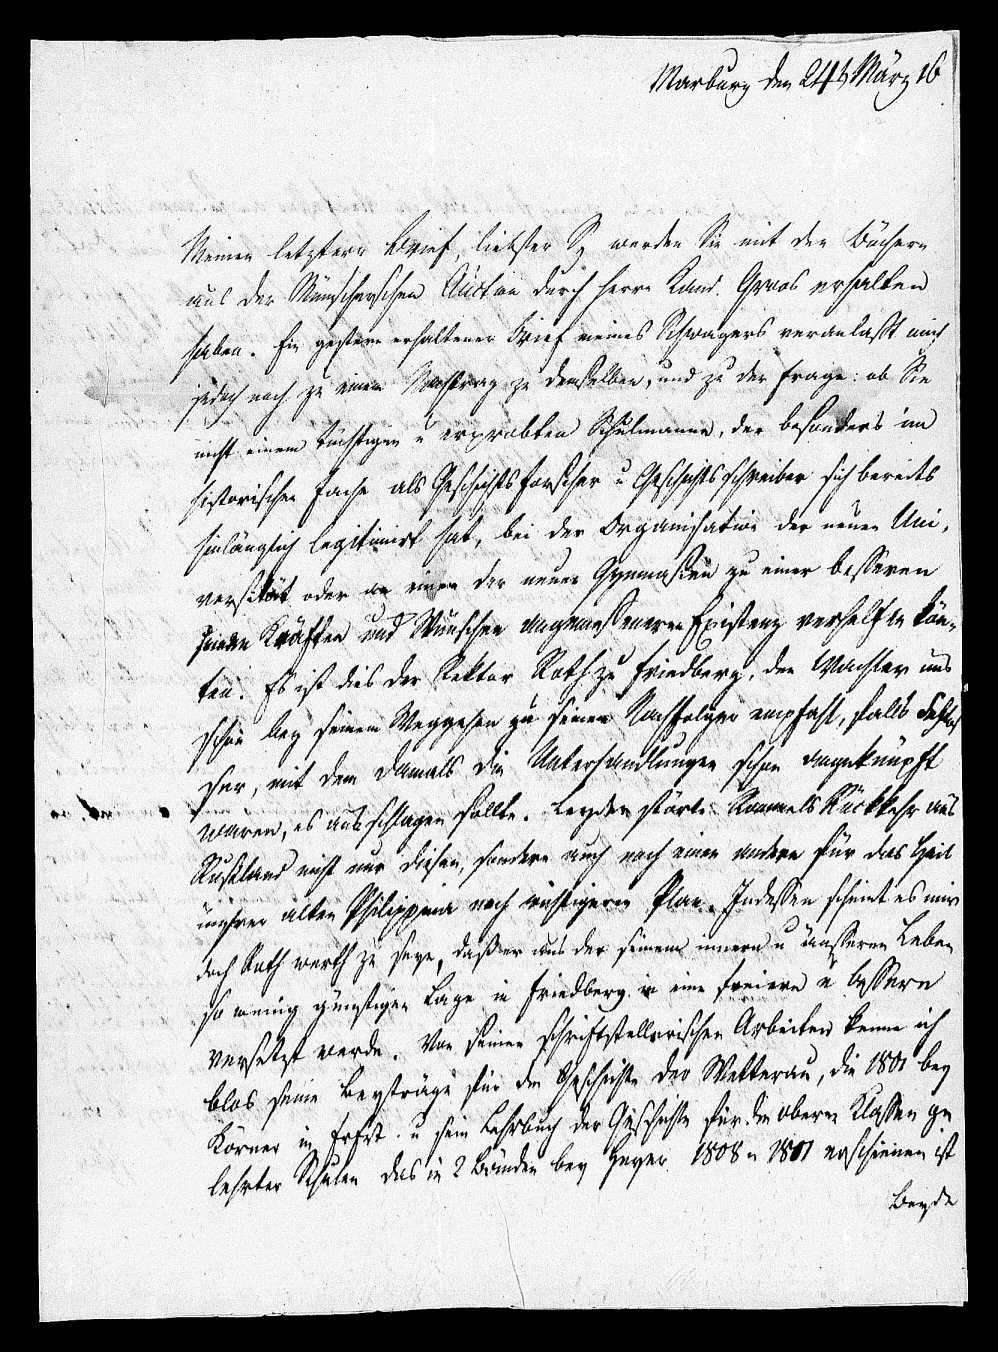 Marburg den 24t März 16
Meinen letztern Brief, liebster Sz werden Sie mit den Büchern
aus der Münscherschen Auction durch Herrn Kand. Groos erhalten
haben. Ein gestern erhaltener Brief meines Schwagers veranlaßt mich
jedoch noch zu einem Nachtrag zu demselben, und zu der Frage: ob Sie
nicht einem tüchtigen u erprobten Schulmanne, der besonders im
historischen Fache als Geschichtsforscher u Geschichtsschreiber sich bereits
hinlänglich legitimirt hat, bei der Organisation der neuen Uni-
versität oder an einem der neuen Gymnasien zu einer besseren
seinen Kräften und Wünschen angemesseneren Existenz verhelfen kön-
ten. Es ist dies der Rektor Roth zu Friedberg, den Wachler uns
schon bey seinem Weggehen zu seinem Nachfolger empfahl, falls Schlos
ser, mit dem damals die Unterhandlungen schon angeknüpft
waren, es ausschlagen sollte. Leyder störte Rommels Rückkehr aus
Rußland nicht nur diesen, sondern auch noch einen andern für das Heil
unsrer alten Philippina noch wichtigern Plan. Indessen scheint es mir
doch Roth werth zu seyn, daß er aus der seinem innern u äusseren Leben
so wenig günstigen Lage in Friedberg in eine freiere u bessere
versetzt werde. Von seinen schriftstellerischen Arbeiten kenne ich
blos seine Beyträge für die Geschichte der Wetterau, die 1801 bey
Körner in Frfrt. u sein Lehrbuch der Geschichte für die obern Klassen ge
lehrter Schulen das in 2 Bänden bey Heyer 1808 u 1811 erschienen ist
Beyde